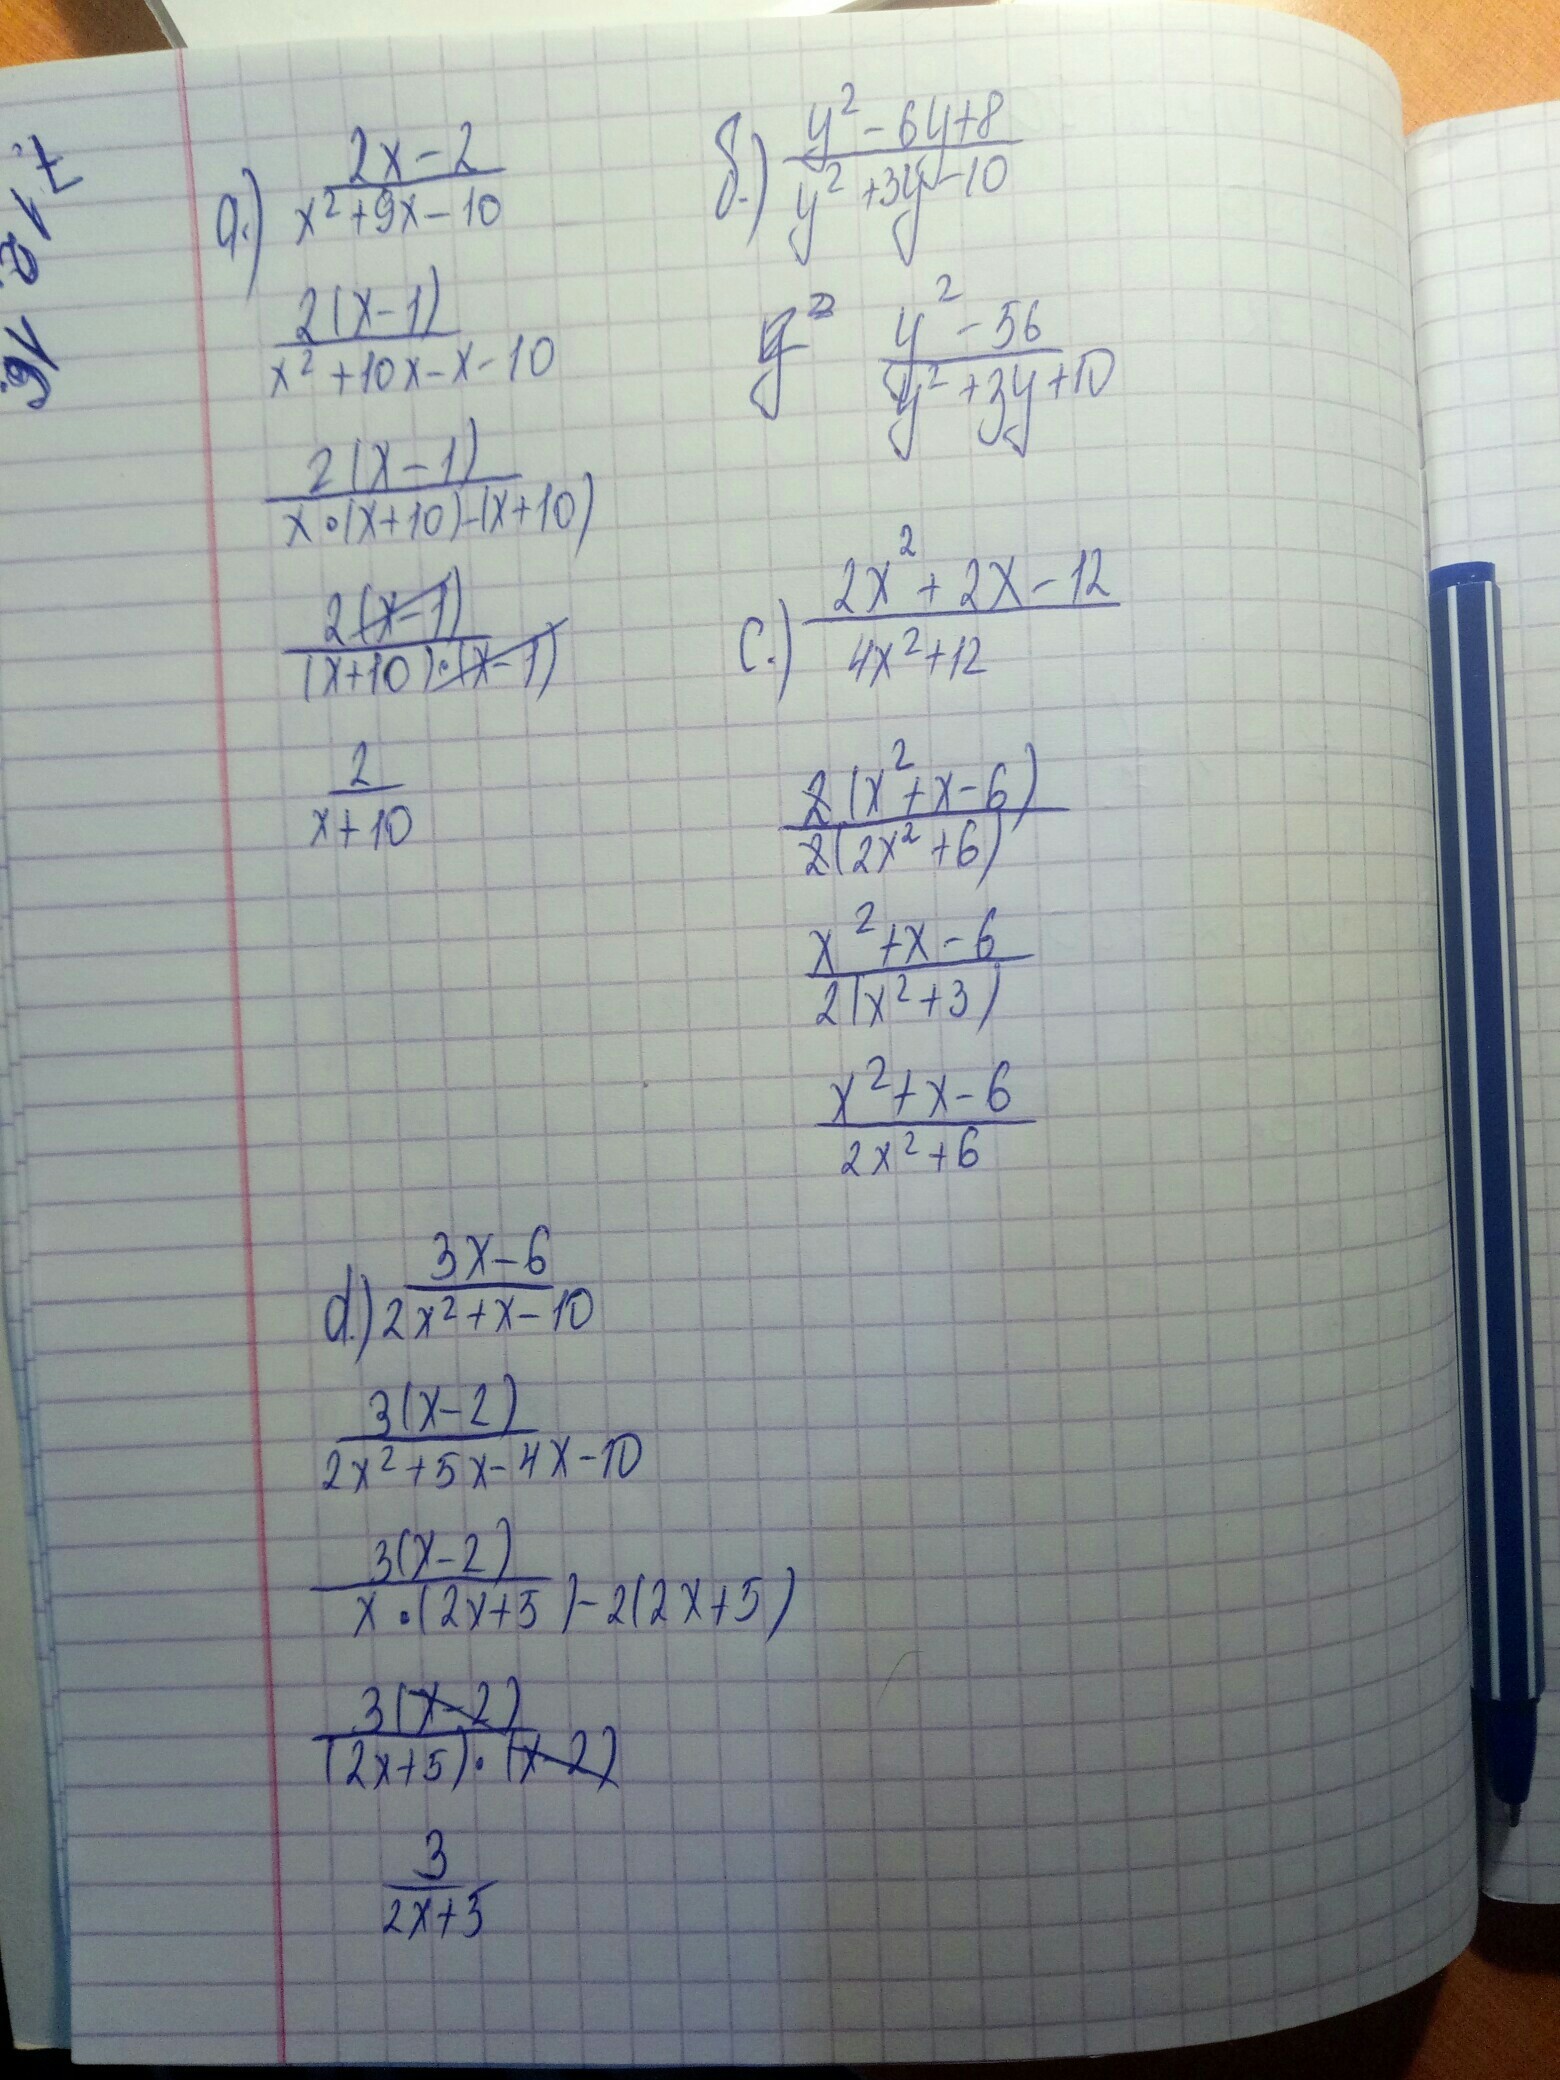 7.12.16
a.) 2x-2
x²+9x-10
2(x-1)
x²+10x-x-10
2(x-1)
x•(x+10)-(x+10)
2(x-1)
(x+10)•(x-1)
2
x+10
б.) y²-6y+8
y²+3y-10
y²
y²-56
y²+3y+10
c.) 2x²+2x-12
4x²+12
2(x²+x-6)
2(2x²+6)
x²+x-6
2(x²+3)
x²+x-6
2x²+6
d.) 3x-6
2x²+x-10
3(x-2)
2x²+5x-4x-10
3(x-2)
x•(2x+5)-2(2x+5)
3(x-2)
(2x+5)•(x-2)
3
2x+5